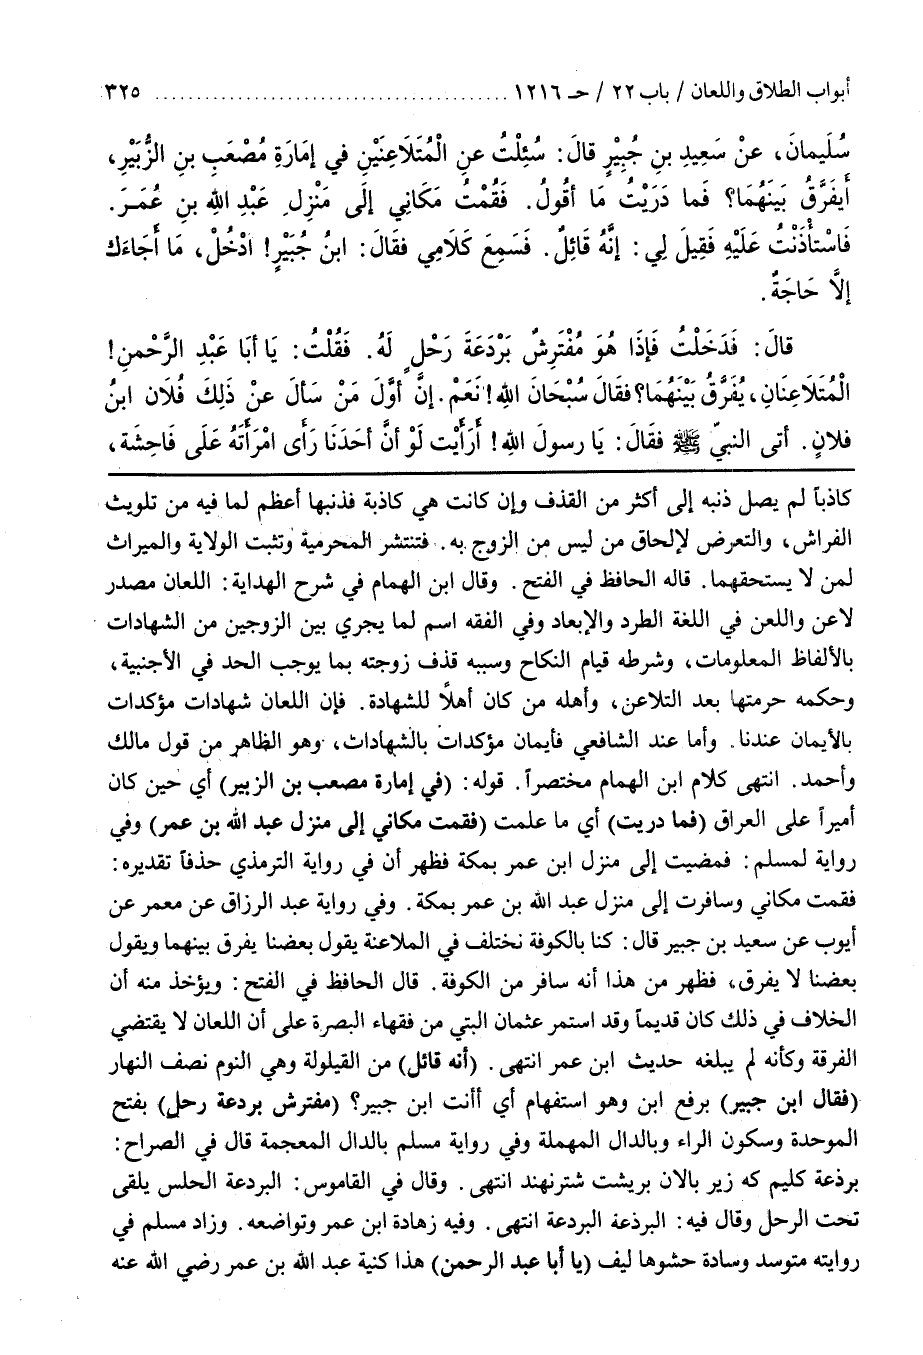 أبواب الطلاق واللعان / باب ٢٢ / حـ ١٢١٦ ........................................ ٣٢٥
سُلَيمانَ، عنْ سَعِيدِ بنِ جُبيْرٍ قالَ: سُئِلْتُ عنِ الْمُتَلَاعِنَيْنِ في إمَارَةِ مُصْعَبِ بنِ الزُّبَيْرِ،
أَيفَرَّقُ بَينَهُمَا؟ فَما دَرَيْتُ مَا أقُولُ. فَقُمْتُ مَكَانِي إلَى مَنْزِلِ عَبْدِ اللهِ بنِ عُمَرَ.
فَاسْتأْذَنْتُ عَلَيْهِ فَقِيلَ لِي: إنَّهُ قَائِلٌ. فَسَمِعَ كَلَامِي فقَالَ: ابنُ جُبَيْرٍ! ادْخُلْ، مَا أَجَاءَك
إلاَّ حَاجَةٌ.
قالَ: فَدَخَلْتُ فَإذَا هُوَ مُفْتَرِشٌ بَرْدَعَةَ رَحْلٍ لَهُ. فَقُلْتُ: يَا أبَا عَبْدِ الرَّحْمنِ!
الْمُتَلَاعِنَانِ، يُفَرَّقُ بَيْنَهُمَا؟ فقَالَ سُبْحَانَ اللهِ! نَعَمْ. إنَّ أوَّلَ مَنْ سَألَ عنْ ذَلِكَ فُلَان ابنُ
فلانٍ. أتى النبيَّ ﷺ فقَالَ: يَا رسولَ اللهِ! أَرَأَيْت لَوْ أنَّ أحَدَنَا رَأَى امْرَأَتَهُ عَلَى فَاحِشَة،
كاذباً لم يصل ذنبه إلى أكثر من القذف وإن كانت هي كاذبة فذنبها أعظم لما فيه من تلويث
الفراش، والتعرض لإلحاق من ليس من الزوج به. فتنتشر المحرمية وتثبت الولاية والميراث
لمن لا يستحقهما. قاله الحافظ في الفتح. وقال ابن الهمام في شرح الهداية: اللعان مصدر
لاعن واللعن في اللغة الطرد والإبعاد وفي الفقه اسم لما يجري بين الزوجين من الشهادات
بالألفاظ المعلومات، وشرطه قيام النكاح وسببه قذف زوجته بما يوجب الحد في الأجنبية،
وحكمه حرمتها بعد التلاعن، وأهله من كان أهلاً للشهادة. فإن اللعان شهادات مؤكدات
بالأيمان عندنا. وأما عند الشافعي فأيمان مؤكدات بالشهادات، وهو الظاهر من قول مالك
وأحمد. انتهى كلام ابن الهمام مختصراً. قوله: (في إمارة مصعب بن الزبير) أي حين كان
أميراً على العراق (فما دريت) أي ما علمت (فقمت مكاني إلى منزل عبد الله بن عمر) وفي
رواية لمسلم: فمضيت إلى منزل ابن عمر بمكة فظهر أن في رواية الترمذي حذفاً تقديره:
فقمت مكاني وسافرت إلى منزل عبد الله بن عمر بمكة. وفي رواية عبد الرزاق عن معمر عن
أيوب عن سعيد بن جبير قال: كنا بالكوفة نختلف في الملاعنة يقول بعضنا يفرق بينهما ويقول
بعضنا لا يفرق، فظهر من هذا أنه سافر من الكوفة. قال الحافظ في الفتح: ويؤخذ منه أن
الخلاف في ذلك كان قديماً وقد استمر عثمان البتي من فقهاء البصرة على أن اللعان لا يقتضي
الفرقة وكأنه لم يبلغه حديث ابن عمر انتهى. (أنه قائل) من القيلولة وهي النوم نصف النهار
(فقال ابن جبير) برفع ابن وهو استفهام أي أأنت ابن جبير؟ (مفترش بردعة رحل) بفتح
الموحدة وسكون الراء وبالدال المهملة وفي رواية مسلم بالدال المعجمة قال في الصراح:
برذعة كليم كه زير بالان بريشت شترنهند انتهى. وقال في القاموس: البردعة الحلس يلقى
تحت الرحل وقال فيه: البرذعة البردعة انتهى. وفيه زهادة ابن عمر وتواضعه. وزاد مسلم في
روايته متوسد وسادة حشوها ليف (يا أبا عبد الرحمن) هذا كنية عبد الله بن عمر رضي الله عنه